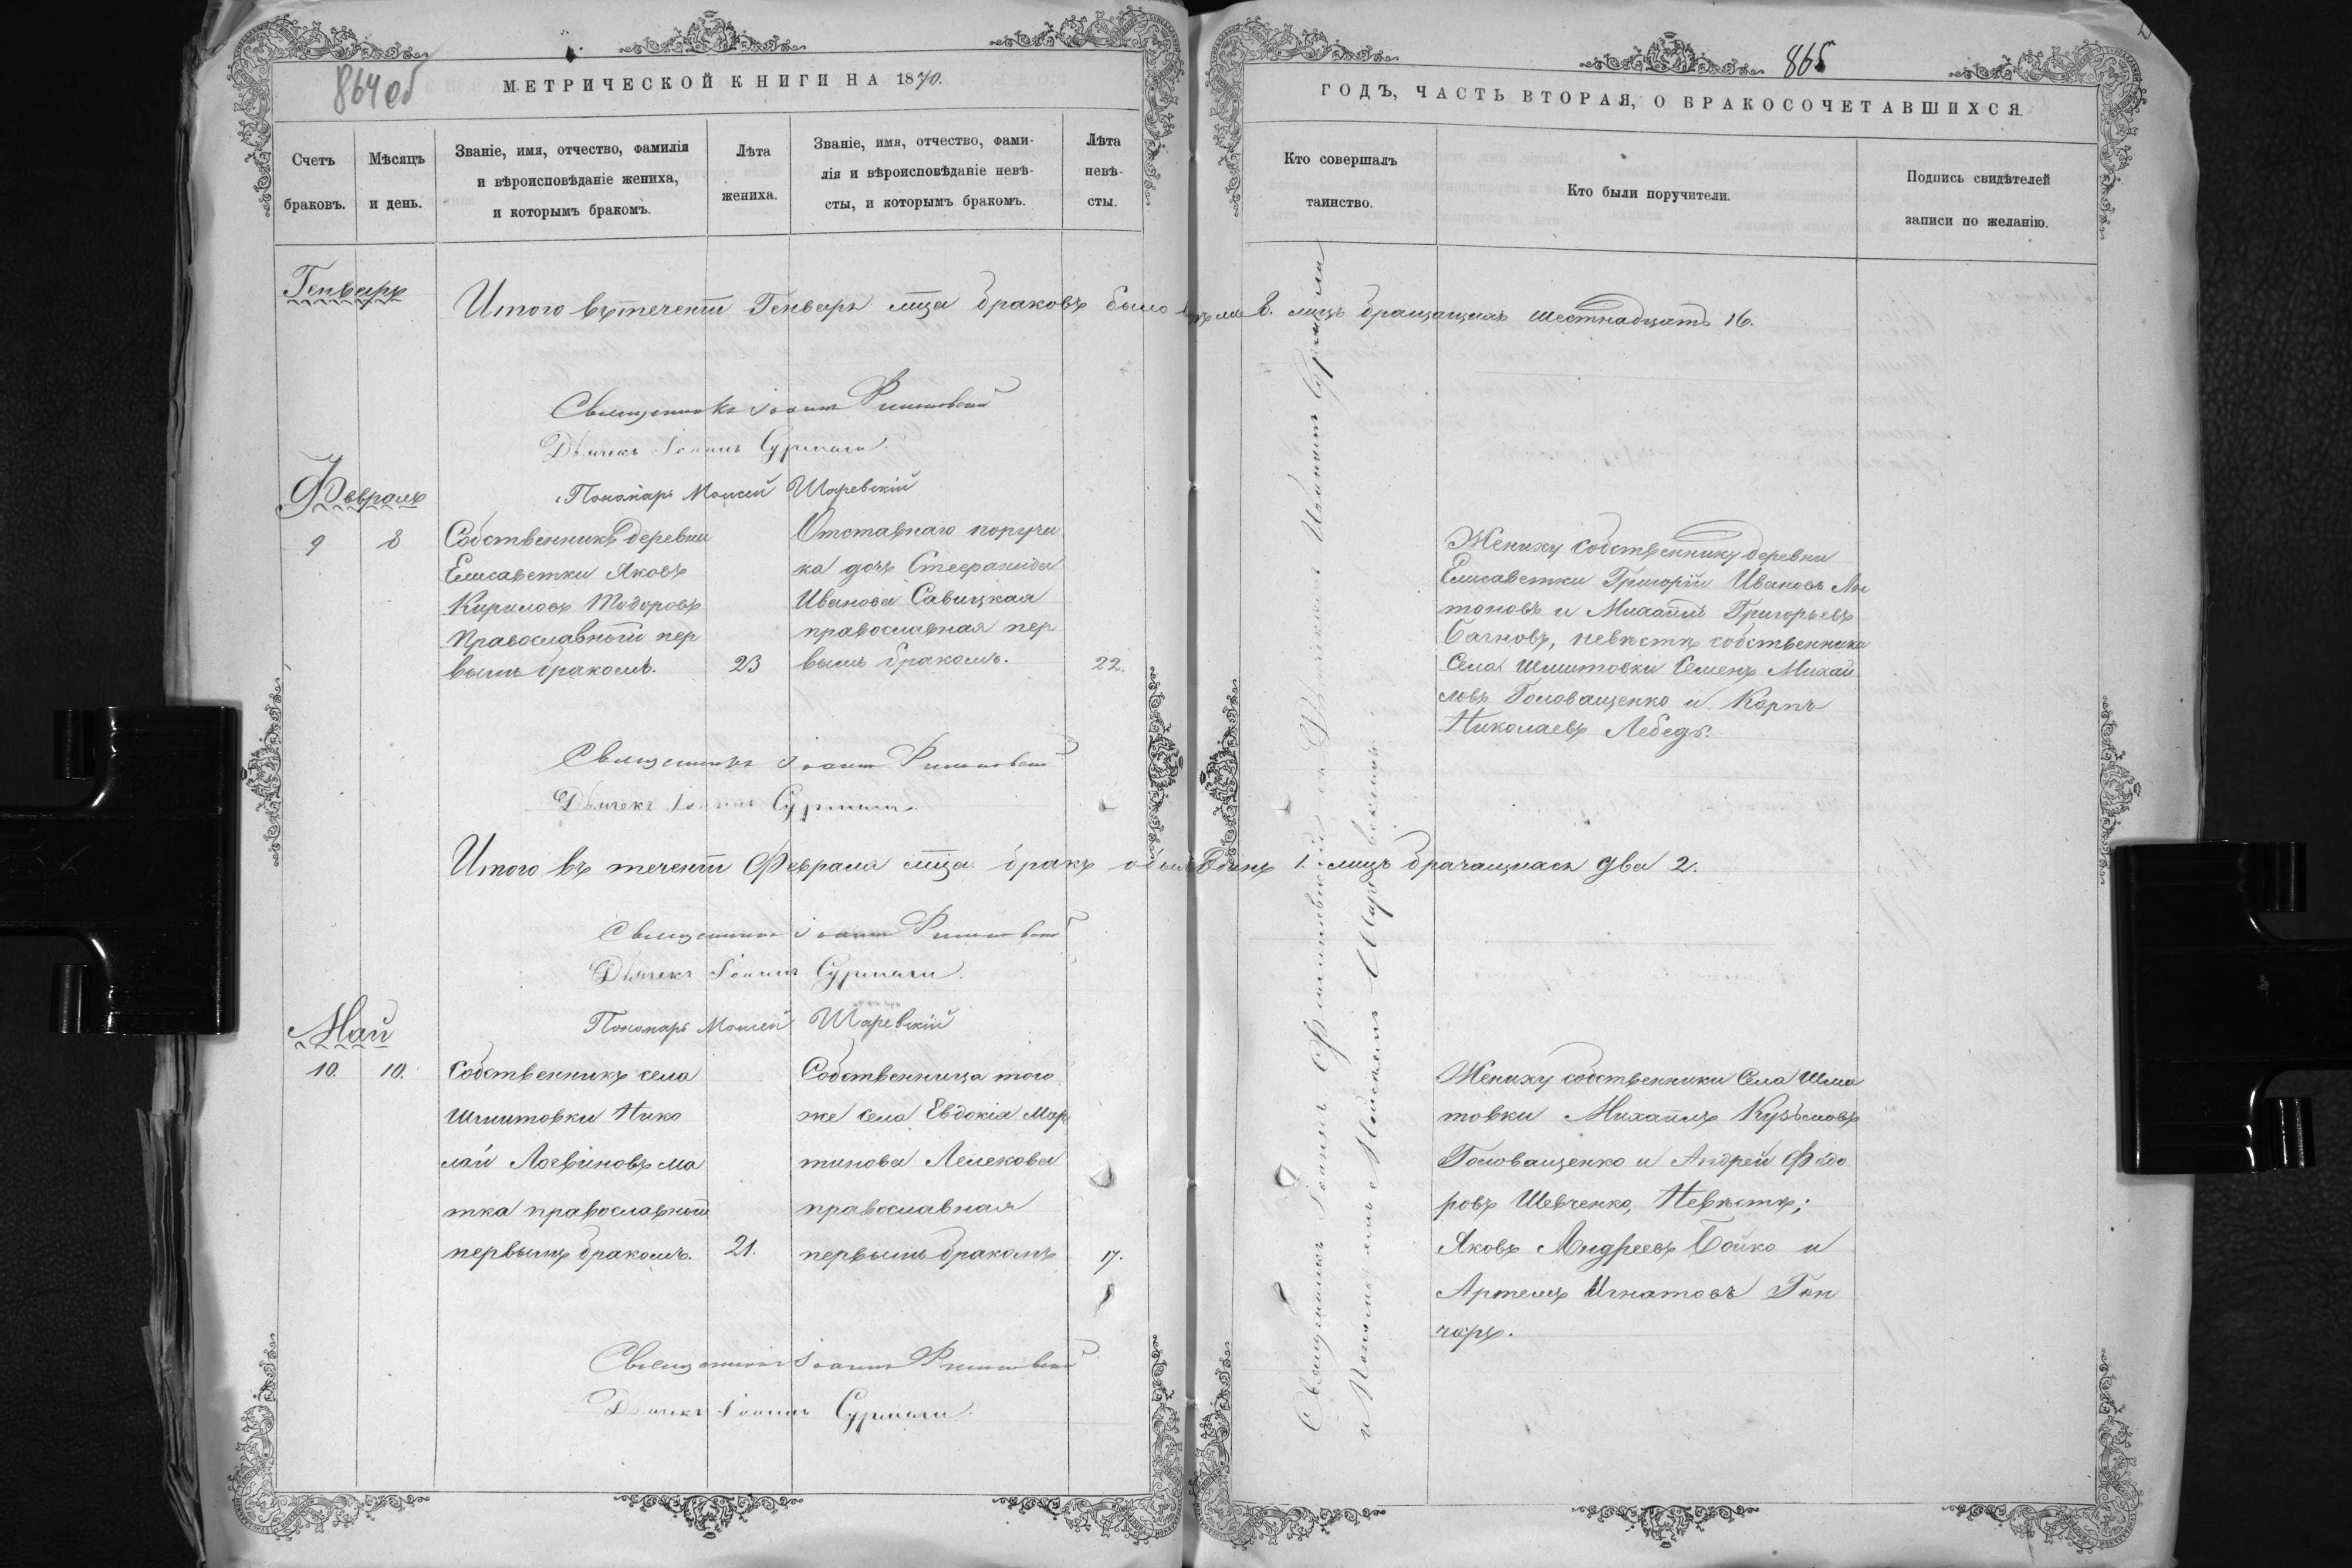 864 об
МЕТРИЧЕСКОЙ КНИГИ НА 1870.
Счетъ браковъ.
Мѣсяцъ и день.
Званіе, имя, отчество, фамилія
и вѣроисповѣданіе жениха,
и которымъ бракомъ.
Лѣта
жениха.
Званіе, имя, отчество, фами-
лія и вѣроисповѣданіе невѣ-
сты, и которымъ бракомъ.
Лѣта
невѣ-
сты.
Генварь
Итого въ теченіи Генваря мѣца браковъ было 8. лицъ бращащихъ шестнадцать 16.
Священникъ Іоаннъ
Дьячекъ Іоаннъ
Пономарь Моисей Шаревскій
Февраль
9
8
Собственникъ деревни
Елисаветки Яковъ
Кириловъ Тодоровъ
Православный пер
вымъ бракомъ.
23
Отставнаго поручи
ка дочь Стефанида
Иванова Савицкая
православная пер
вымъ бракомъ.
22.
Священникъ Іоаннъ
Дьячекъ Іоаннъ
Итого въ теченіи Февраля мѣца бракъ одинъ 1. лицъ два 2.
Священникъ Іоаннъ
Дьячекъ Іоаннъ
Пономарь Моисей Шаревскій
Май
10.
10.
Собственникъ села
Шмитовки Нико
лай Логвиновъ Ма
тка православный
первымъ бракомъ.
21.
Собственница того
же села Евдокія Мар
тинова Лелекова
православная
первымъ бракомъ
17.
Священникъ Іоаннъ
Дьячекъ Іоаннъ
865
ГОДЪ, ЧАСТЬ ВТОРАЯ, О БРАКОСОЧЕТАВШИХСЯ.
Кто совершалъ
таинство.
Кто были поручители.
Подпись свидѣтелей
записи по желанію.
Священникъ Іоаннъ
и Пономаремъ Моисеемъ Шаревскимъ
Жениху собственнику деревни
Елисаветки Григорій Ивановъ Ан
тоновъ и Михаилъ Григорьевъ
невѣстѣ собственники
Села Шмитовки Семенъ Михай
ловъ Головащенко и Карпъ
Николаевъ Лебедь.
Жениху собственники Села Шми
товки Михаилъ Кузьмовъ
Головащенко и Андрей Федо
ровъ Шевченко, Невѣстѣ;
Яковъ Андреевъ Бойко и
Артемъ Игнатовъ Гон
чаръ.